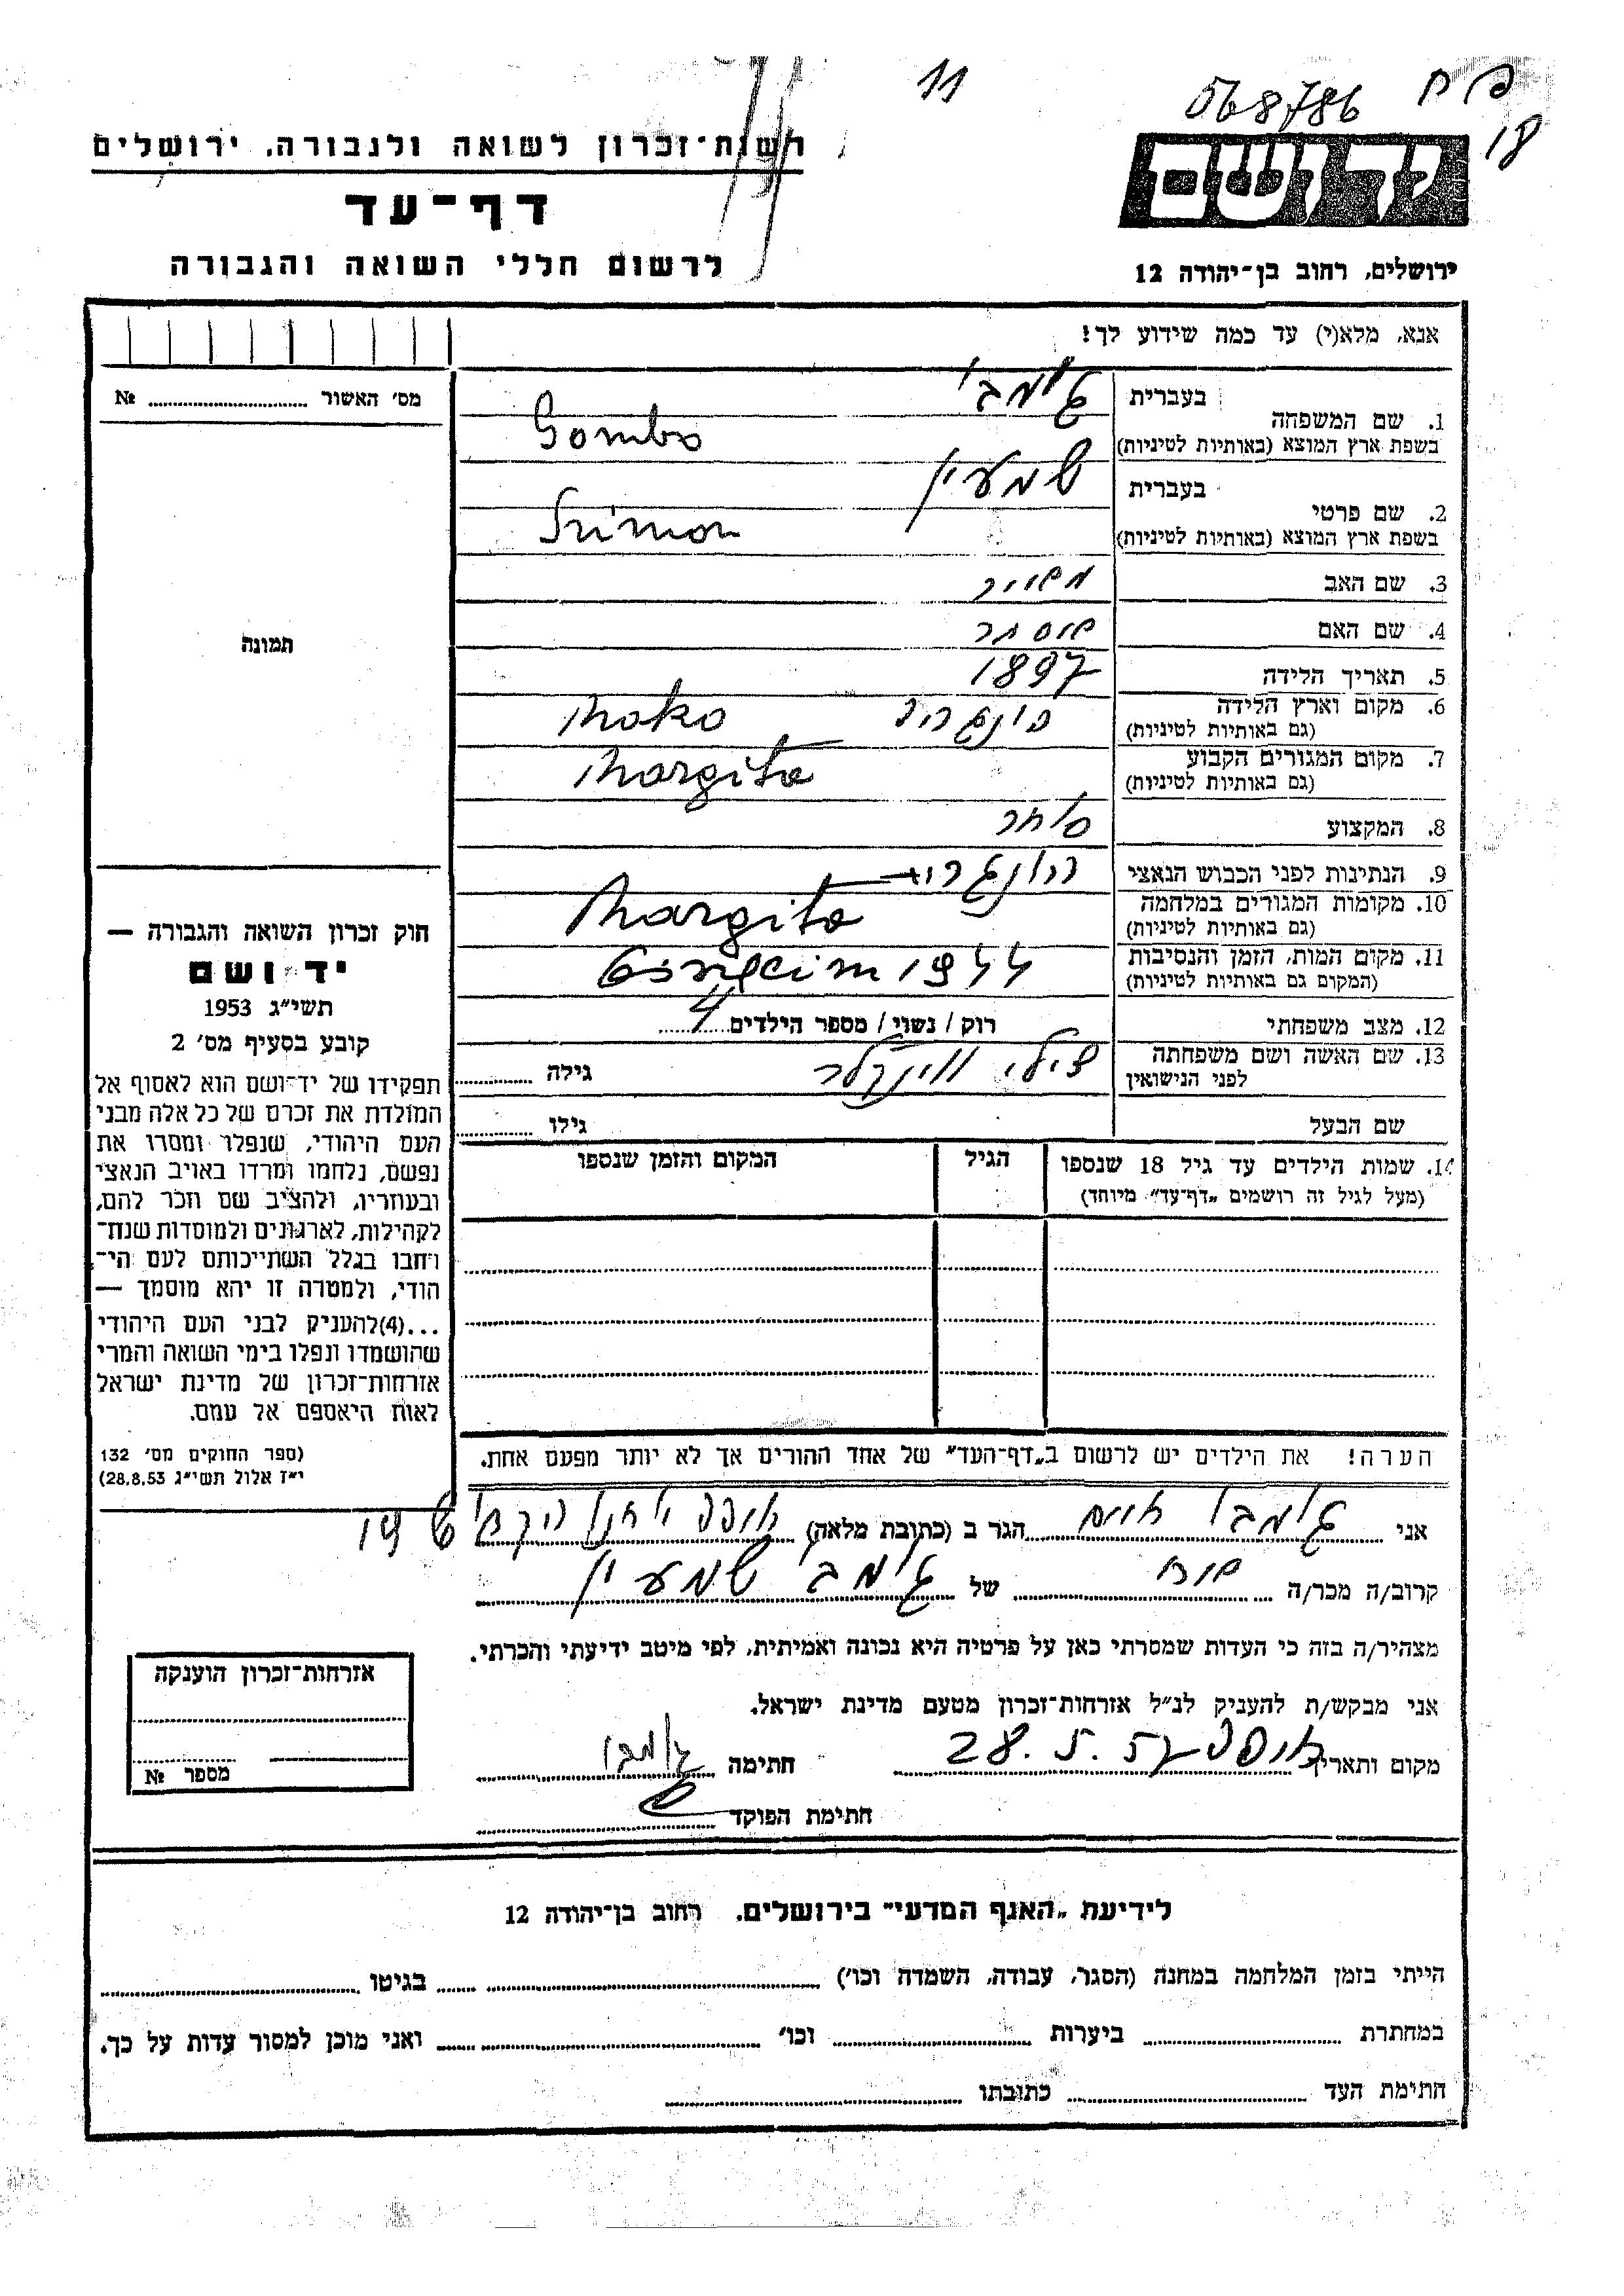 11
568786
רשות־זכרון לשואה ולגבורה, ירושלים
ידושם
דף־עד
לרשום חללי השואה והגבורה
ירושלים, רחוב בן־יהודה 12
אנא, מלא(י) עד כמה שידוע לך!
מס׳ האשור № 
1. שם המשפחה בעברית
בשפת ארץ המוצא (באותיות לטיניות) Gombo
2. שם פרטי בעברית שמעון
בשפת ארץ המוצא (באותיות לטיניות) Simon
3. שם האב
4. שם האם אסתר
תמונה
5. תאריך הלידה 1897
6. מקום וארץ הלידה הונגריה Mako
(גם באותיות לטיניות)
7. מקום המגורים הקבוע Margita
(גם באותיות לטיניות)
8. המקצוע סוחר
9. הנתינות לפני הכבוש הנאצי הונגרית
10. מקומות המגורים במלחמה Margita
(גם באותיות לטיניות)
11. מקום המות, הזמן והנסיבות 1944
(המקום גם באותיות לטיניות)
12. מצב משפחתי רוק / נשוי / מספר הילדים 4
13. שם האשה ושם משפחתה צילי ווינקלר גילה
לפני הנישואין
שם הבעל גילו
14. שמות הילדים עד גיל 18 שנספו הגיל המקום והזמן שנספו
(מעל לגיל זה רושמים „דף־עד״ מיוחד)
חוק זכרון השואה והגבורה —
יד ושם
תשי״ג 1953
קובע בסעיף מס׳ 2
תפקידו של יד־ושם הוא לאסוף אל
המולדת את זכרם של כל אלה מבני
העם היהודי, שנפלו ומסרו את
נפשם, נלחמו ומרדו באויב הנאצי
ובעוזריו, ולהציב שם וזכר להם,
לקהילות, לארגונים ולמוסדות שנח־
רחבו בגלל השתייכותם לעם הי־
הודי, ולמטרה זו יהא מוסמך —
...(4)להעניק לבני העם היהודי
שהושמדו ונפלו בימי השואה והמרי
אזרחות־זכרון של מדינת ישראל
לאות היאספם אל עמם.
(ספר החוקים מס׳ 132
י״ז אלול תשי״ג 28.8.53)
הערה! את הילדים יש לרשום ב„דף־העד״ של אחד ההורים אך לא יותר מפעם אחת.
אני הגר ב (כתובת מלאה)
קרוב/ה מכר/ה של שמעון
מצהיר/ה בזה כי העדות שמסרתי כאן על פרטיה היא נכונה ואמיתית, לפי מיטב ידיעתי והכרתי.
אני מבקש/ת להעניק לנ״ל אזרחות־זכרון מטעם מדינת ישראל.
מקום ותאריך 28.5.57 חתימה
חתימת הפוקד
אזרחות־זכרון הוענקה
מספר №
לידיעת „האגף המדעי״ בירושלים, רחוב בן־יהודה 12
הייתי בזמן המלחמה במחנה (הסגר, עבודה, השמדה וכו׳) בגיטו
במחתרת ביערות וכו׳ ואני מוכן למסור עדות על כך.
חתימת העד כתובתו